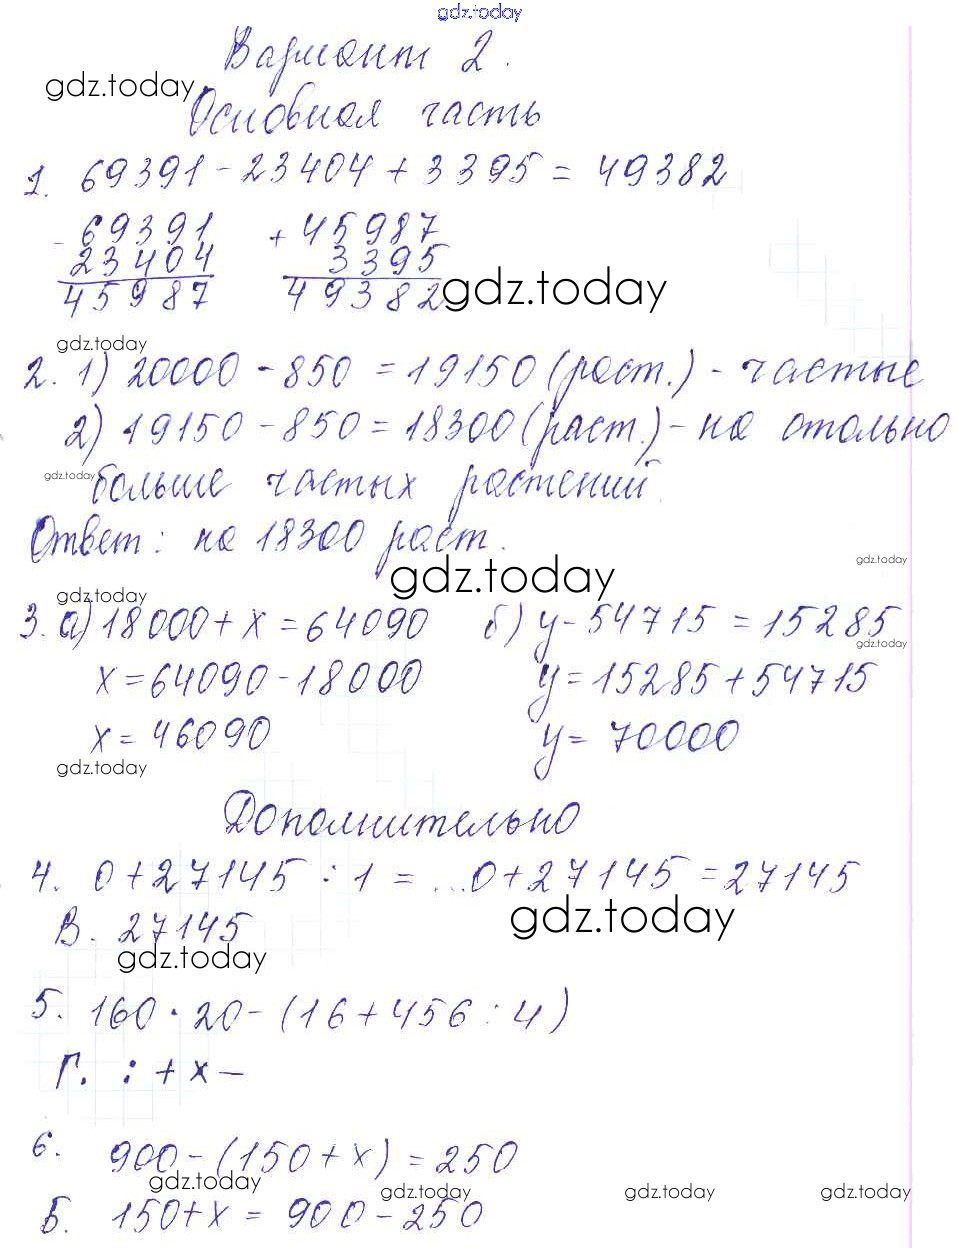 gdz.today
Вариант 2.
gdz.today
Основная часть
1. 69391 - 23404 + 3395 = 49382
- 69391 + 45987
23404 3395
45987 49382 gdz.today
gdz.today
2. 1) 20000 - 850 = 19150 (раст.) - частые
2) 19150 - 850 = 18300 (раст.) - на столько
gdz.today больше частых растений.
Ответ: на 18300 раст.
gdz.today gdz.today
gdz.today
3. а) 18000 + x = 64090 б) y - 54715 = 15285
gdz.today
x = 64090 - 18000 y = 15285 + 54715
x = 46090 y = 70000
gdz.today
Дополнительно
4. 0 + 27145 : 1 = ...0 + 27145 = 27145
gdz.today
В. 27145
gdz.today
5. 160 · 20 - (16 + 456 : 4)
Г. : + x -
6. 900 - (150 + x) = 250
gdz.today gdz.today gdz.today gdz.today
Б. 150 + x = 900 - 250